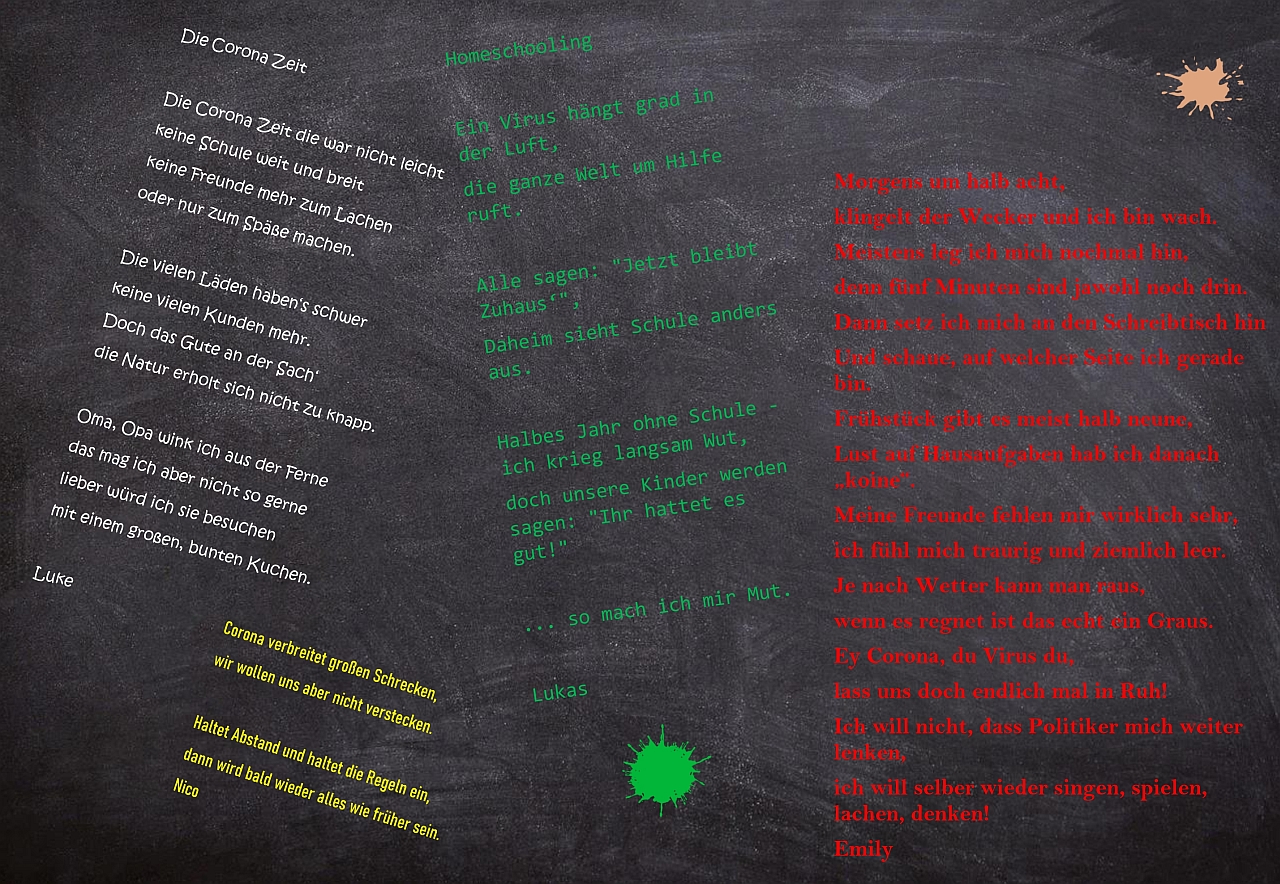 Die Corona Zeit
Die Corona Zeit die war nicht leicht
keine Schule weit und breit
keine Freunde mehr zum Lachen
oder nur zum Späße machen.
Die vielen Läden haben's schwer
keine vielen Kunden mehr.
Doch das Gute an der Sach'
die Natur erholt sich nicht zu knapp.
Oma, Opa wink ich aus der Ferne
das mag ich aber nicht so gerne
lieber würd ich sie besuchen
mit einem großen, bunten Kuchen.
Luke
Corona verbreitet großen Schrecken,
wir wollen uns aber nicht verstecken.
Haltet Abstand und haltet die Regeln ein,
dann wird bald wieder alles wie früher sein.
Nico
Homeschooling
Ein Virus hängt grad in
der Luft,
die ganze Welt um Hilfe
ruft.
Alle sagen: "Jetzt bleibt
Zuhaus‘",
Daheim sieht Schule anders
aus.
Halbes Jahr ohne Schule -
ich krieg langsam Wut,
doch unsere Kinder werden
sagen: "Ihr hattet es
gut!"
... so mach ich mir Mut.
Lukas
Morgens um halb acht,
klingelt der Wecker und ich bin wach.
Meistens leg ich mich nochmal hin,
denn fünf Minuten sind jawohl noch drin.
Dann setz ich mich an den Schreibtisch hin
Und schaue, auf welcher Seite ich gerade
bin.
Frühstück gibt es meist halb neune,
Lust auf Hausaufgaben hab ich danach
„koine“.
Meine Freunde fehlen mir wirklich sehr,
ich fühl mich traurig und ziemlich leer.
Je nach Wetter kann man raus,
wenn es regnet ist das echt ein Graus.
Ey Corona, du Virus du,
lass uns doch endlich mal in Ruh!
Ich will nicht, dass Politiker mich weiter
lenken,
ich will selber wieder singen, spielen,
lachen, denken!
Emily